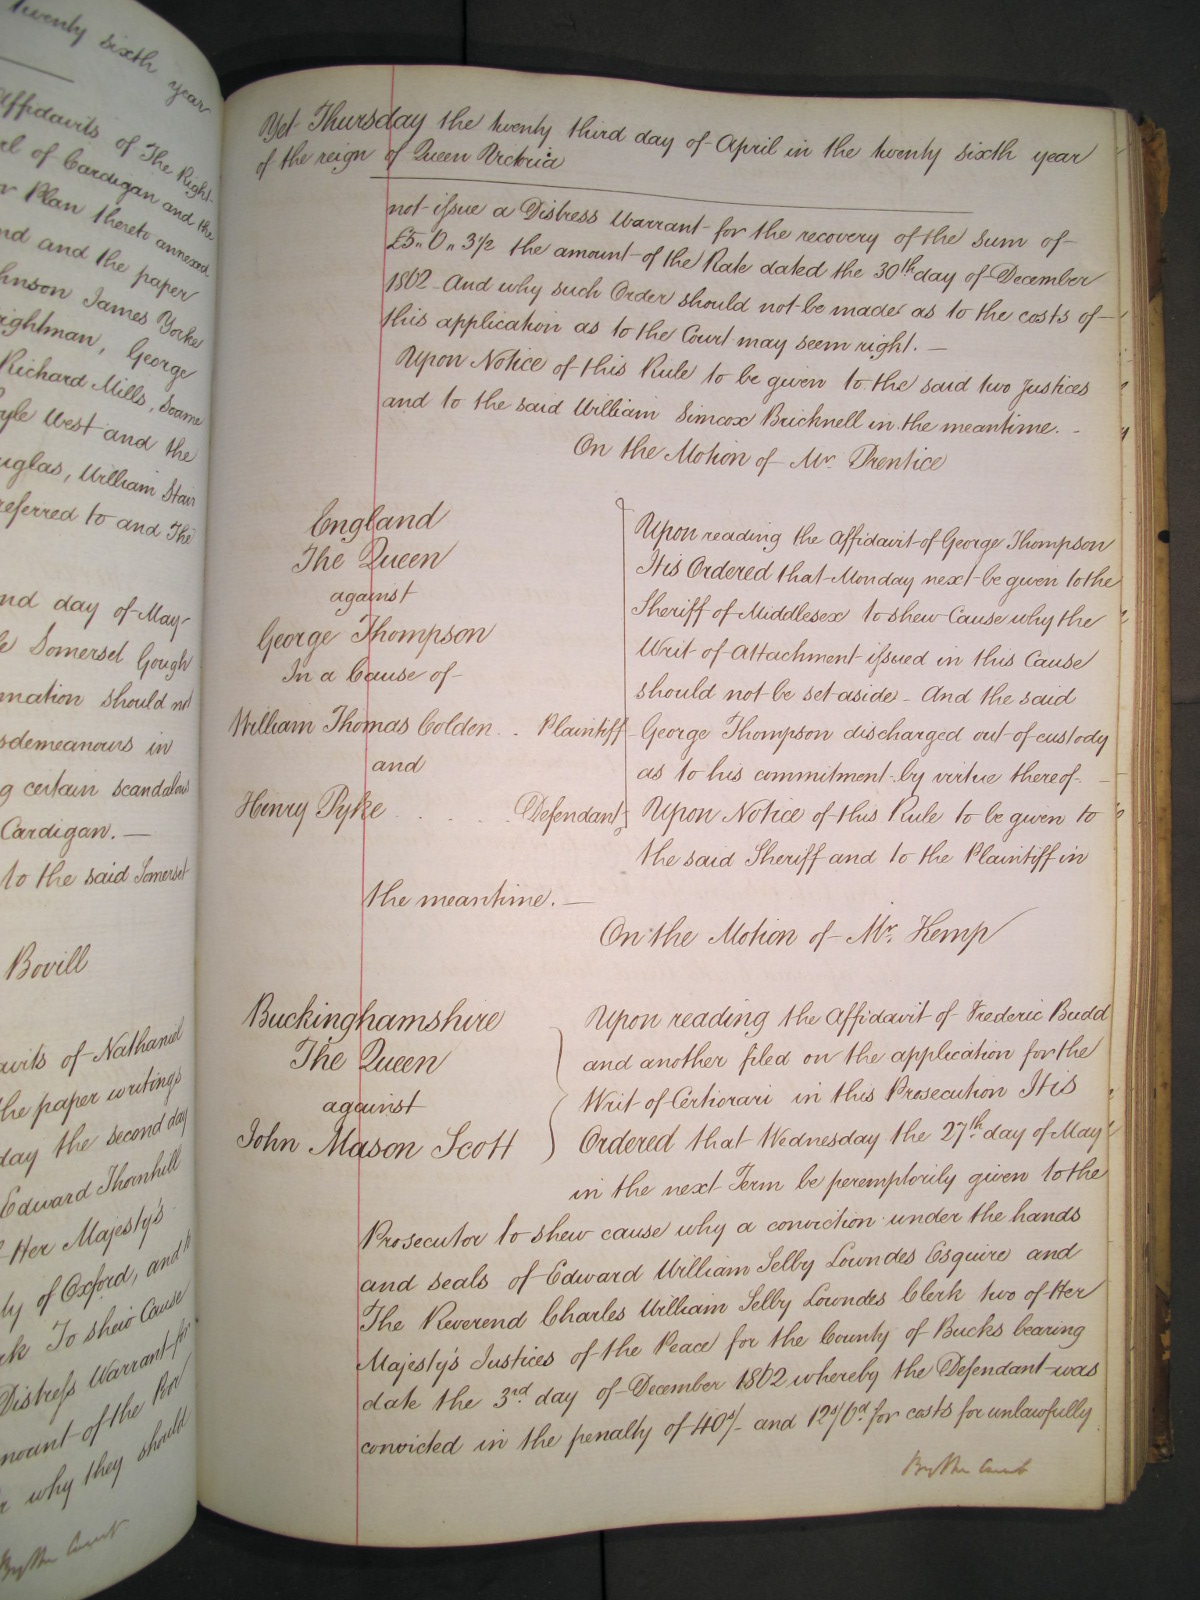 twenty sixth year
Affidavits of The Right
of Cardigan and the
Plan thereto annexed
and the paper
James Yorke
George
Richard Mills,
West and the
William
referred to and The
day of May
Somerset Gough
should not
in
certain scandalous
Cardigan. —
to the said Somerset
Bovill
of Nathaniel
the paper writings
the second day
Edward Thornhill
Her Majesty's
of Oxford, and
To shew Cause
Distress Warrant for
of the
why they should
By the Court
Yet Thursday the twenty third day of April in the twenty sixth year
of the reign of Queen Victoria
not issue a Distress Warrant for the recovery of the sum of
£5 " 0 " 3½ the amount of the Rate dated the 30th day of December
1862 - And why such Order should not be made as to the costs of
this application as to the Court may seem right. —
Upon Notice of this Rule to be given to the said two Justices
and to the said William Simcox Bricknell in the meantime. -
On the Motion of Mr. Prentice
England
The Queen
against
George Thompson
In a Cause of
William Thomas Colden . . Plaintiff
and
Henry Pyke . . . . . Defendant
Upon reading the Affidavit of George Thompson
It is Ordered that Monday next be given to the
Sheriff of Middlesex to shew Cause why the
Writ of Attachment issued in this Cause
should not be set aside - And the said
George Thompson discharged out of custody
as to his commitment by virtue thereof. -
Upon Notice of this Rule to be given to
the said Sheriff and to the Plaintiff in
the meantime. —
On the Motion of Mr. Kemp
Buckinghamshire
The Queen
against
John Mason Scott
Upon reading the Affidavit of Frederic Budd
and another filed on the application for the
Writ of Certiorari in this Prosecution It is
Ordered that Wednesday the 27th day of May
in the next Term be peremptorily given to the
Prosecutor to shew cause why a conviction under the hands
and seals of Edward William Selby Lowndes Esquire and
The Reverend Charles William Selby Lowndes Clerk two of Her
Majesty's Justices of the Peace for the County of Bucks bearing
date the 3rd day of December 1862 whereby the Defendant was
convicted in the penalty of 40s/- and 12s/6d for costs for unlawfully
By the Court